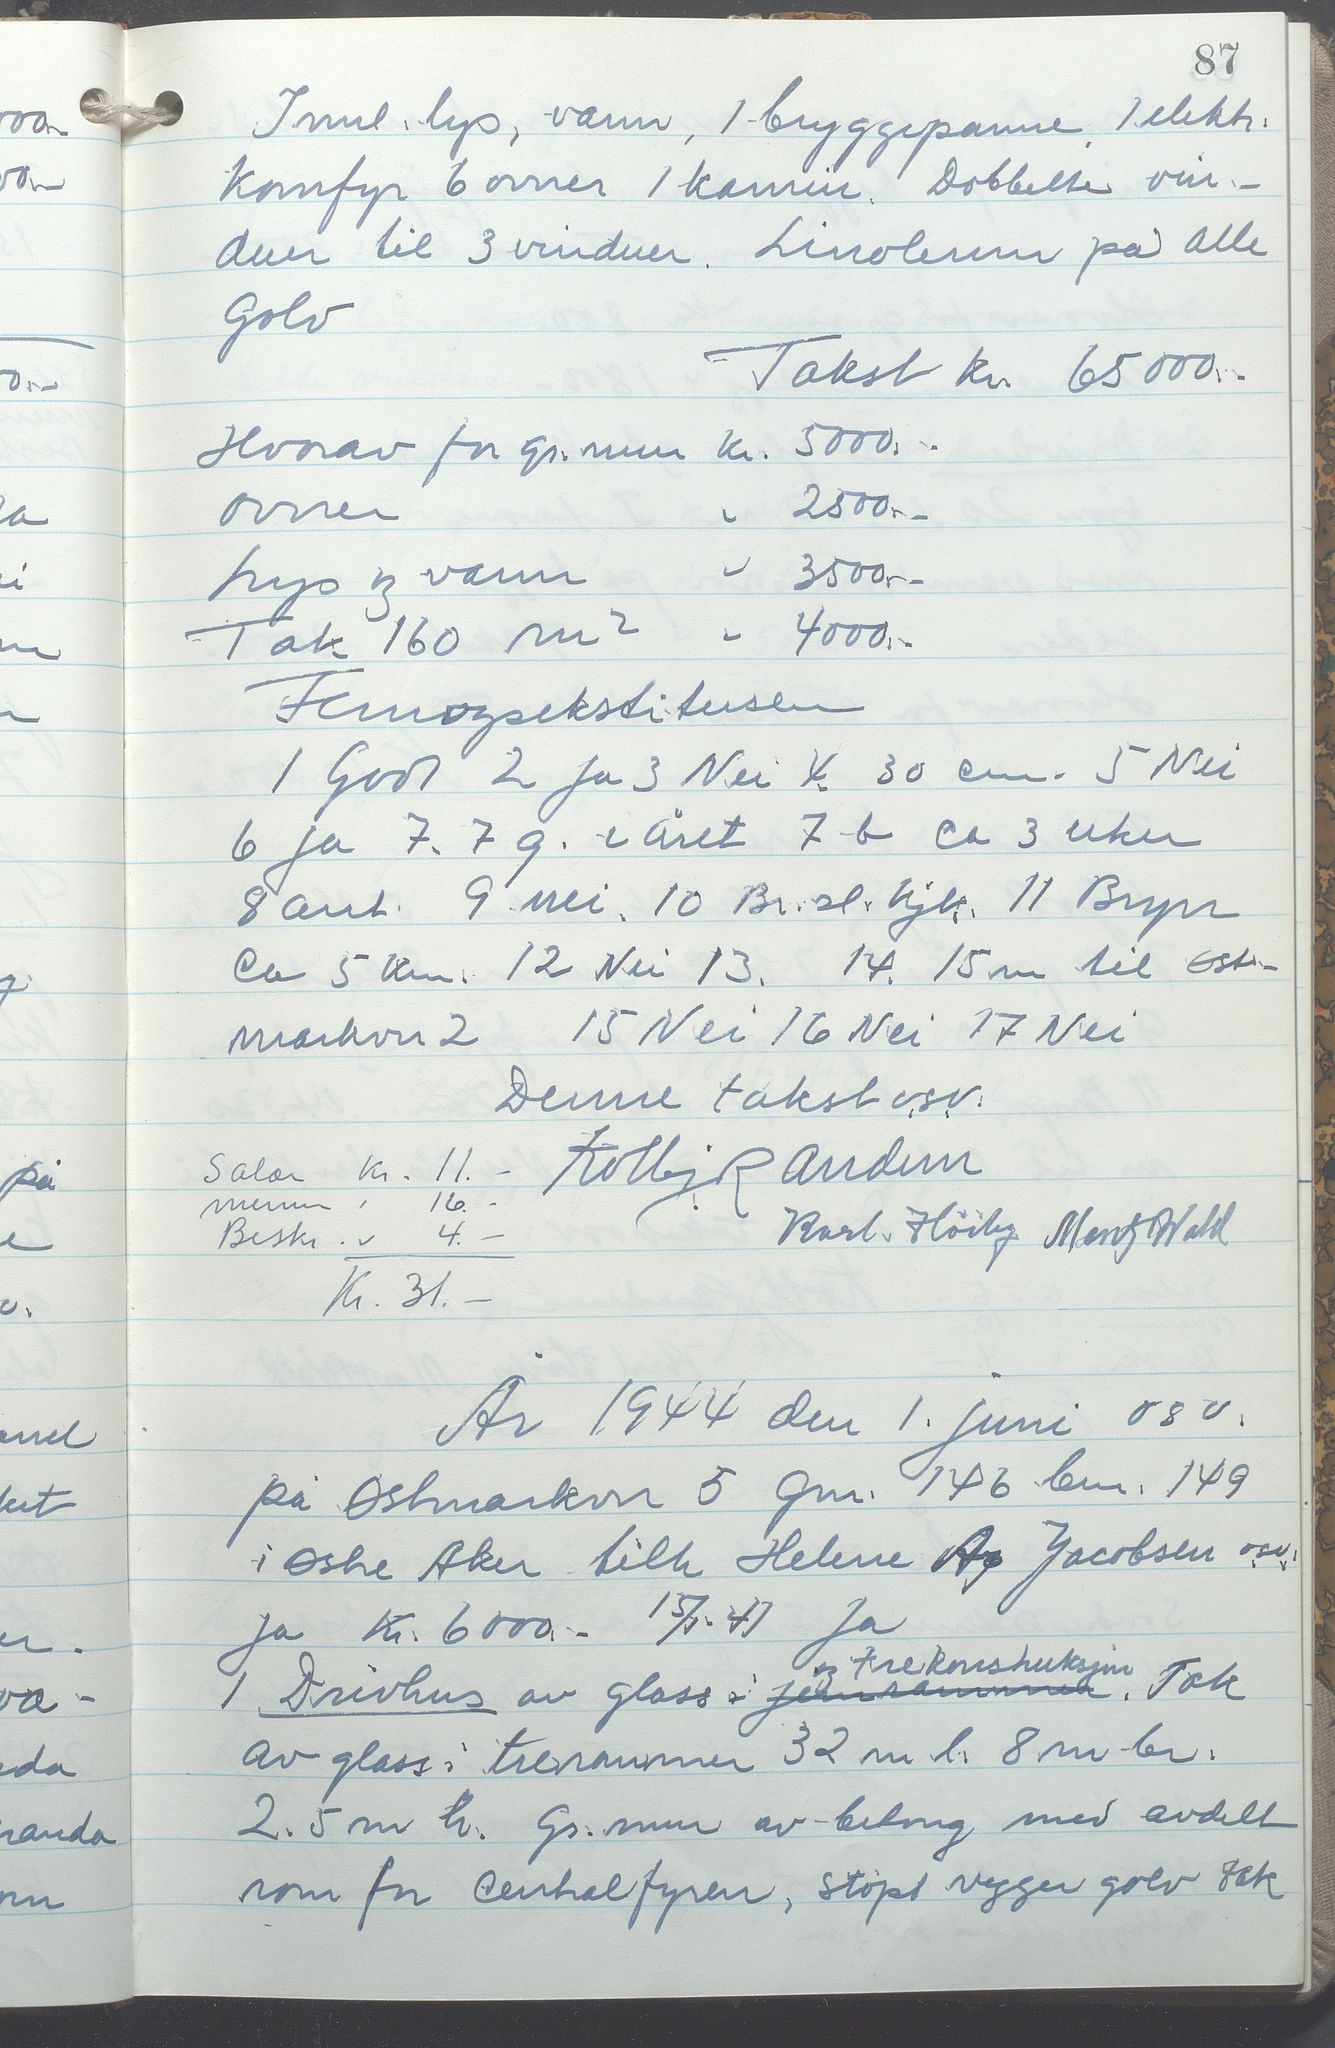 87
Innl. lys, vann, 1 bryggepanne, 1 elektr.
Komfyr 6 ovner 1 kamin. Dobbelte vin-
duer til 3 vinduer. Linoleum på alle
Golv
Takst kr. 65000.-
Hvorav for gr.mur kr. 5000.-
ovner " 2500.-
Lys og vann " 3500.-
Tak 160 m² " 4000.-
Femogsekstitusen
1 Godt 2 Ja 3 Nei 4. 30 cm. 5 Nei
6 Ja 7. 7 g. i året 7 b ca 3 uker
8 ant. 9 nei. 10 Br.sl. kjk. 11 Bryn
Ca 5 km. 12 Nei 13. 14. 15 m til Øst-
markvn 2 15 Nei 16 Nei 17 Nei
Denne takst osv.
Salær kr. 11.- Kolbj. R Andersen
menn " 16.-
Beskr. " 4.- Karl. Höiby Mentz Wahl
Kr. 31.-
År 1944 den 1. juni osv.
på Østmarkvn 5 gnr. 146 bnr. 149
i Østre Aker tilh Helene Jacobsen osv.
Ja Kr. 6000.- Ja
og trekonstruksjon
1 Drivhus av glass i jernrammer. Tak
av glass i trerammer 32 m l. 8 m br.
2.5 m h. Gr.mur av betong med avdelt
rom for Centralfyren, støpt vegger golv tak